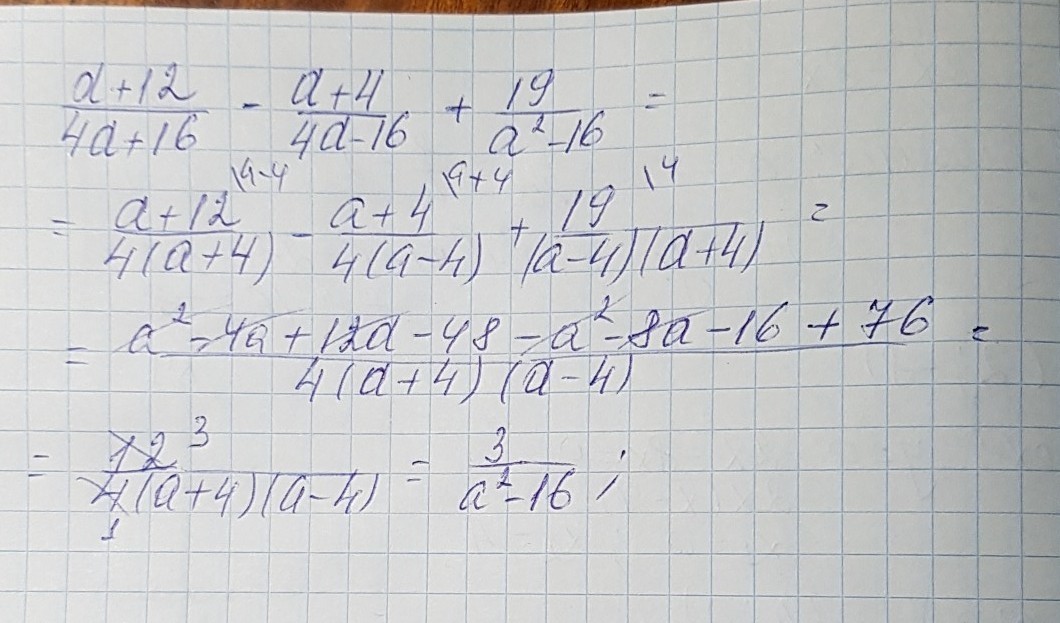 (a+12)/(4a+16) - (a+4)/(4a-16) + 19/(a²-16) =
= (a+12)/(4(a+4)) \a-4 - (a+4)/(4(a-4)) \a+4 + 19/((a-4)(a+4)) \4 =
= (a²-4a+12a-48-a²-8a-16+76)/(4(a+4)(a-4)) =
= 12 3/(4 1 (a+4)(a-4)) = 3/(a²-16) ;